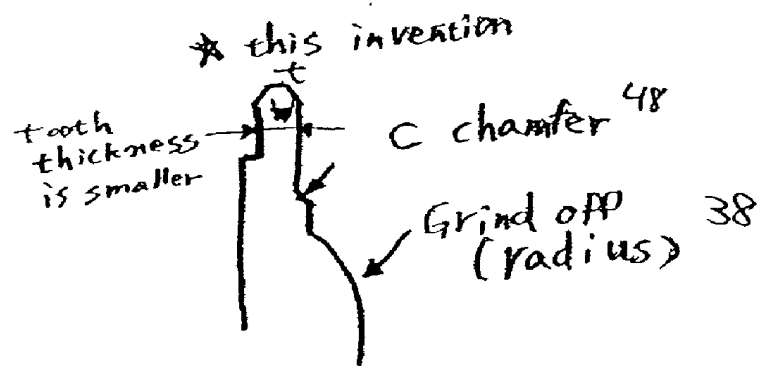 ☆ this invention
t
tooth
thickness
is smaller
C chamfer 48
Grind off 38
(radius)